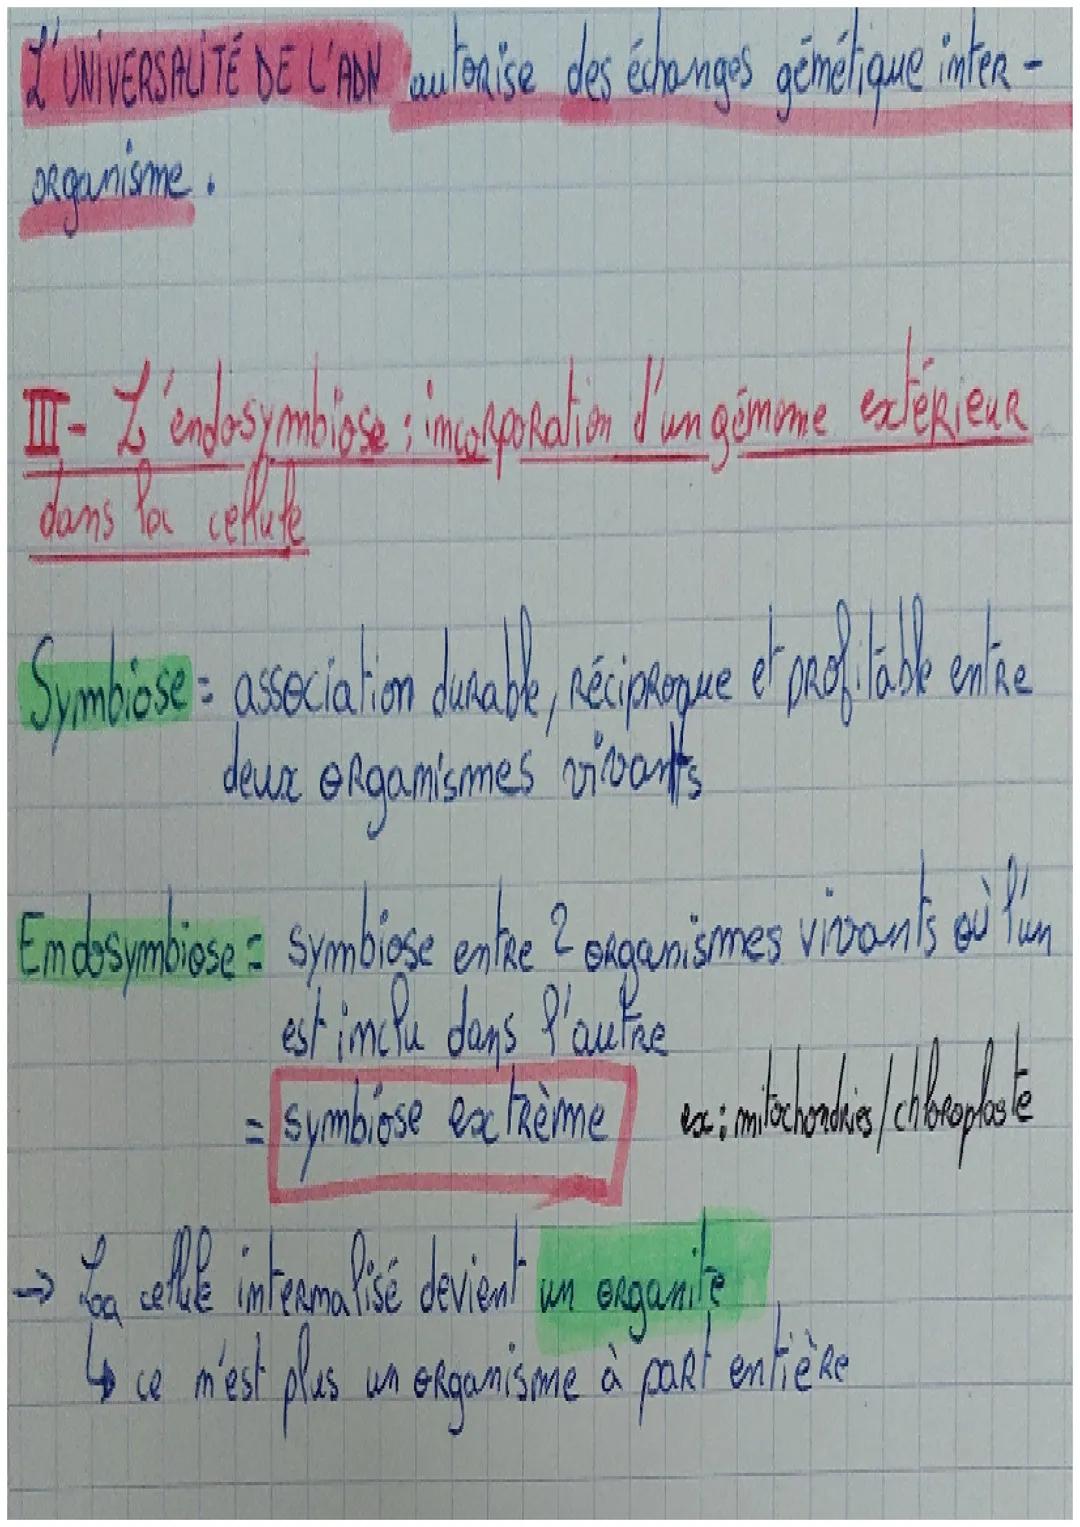 L'UNIVERSALITÉ DE L'ADN autorise des échanges génétique inter-
organisme.
III- L'endosymbiose : incorporation d'un génome extérieur
dans la cellule
Symbiose = association durable, réciproque et profitable entre
deux organismes vivants
Endosymbiose = symbiose entre 2 organismes vivants où l'un
est inclu dans l'autre
= symbiose extrème ex : mitochondries/chloroplaste
→ La cellule internalisé devient un organite
↳ ce n'est plus un organisme à part entière